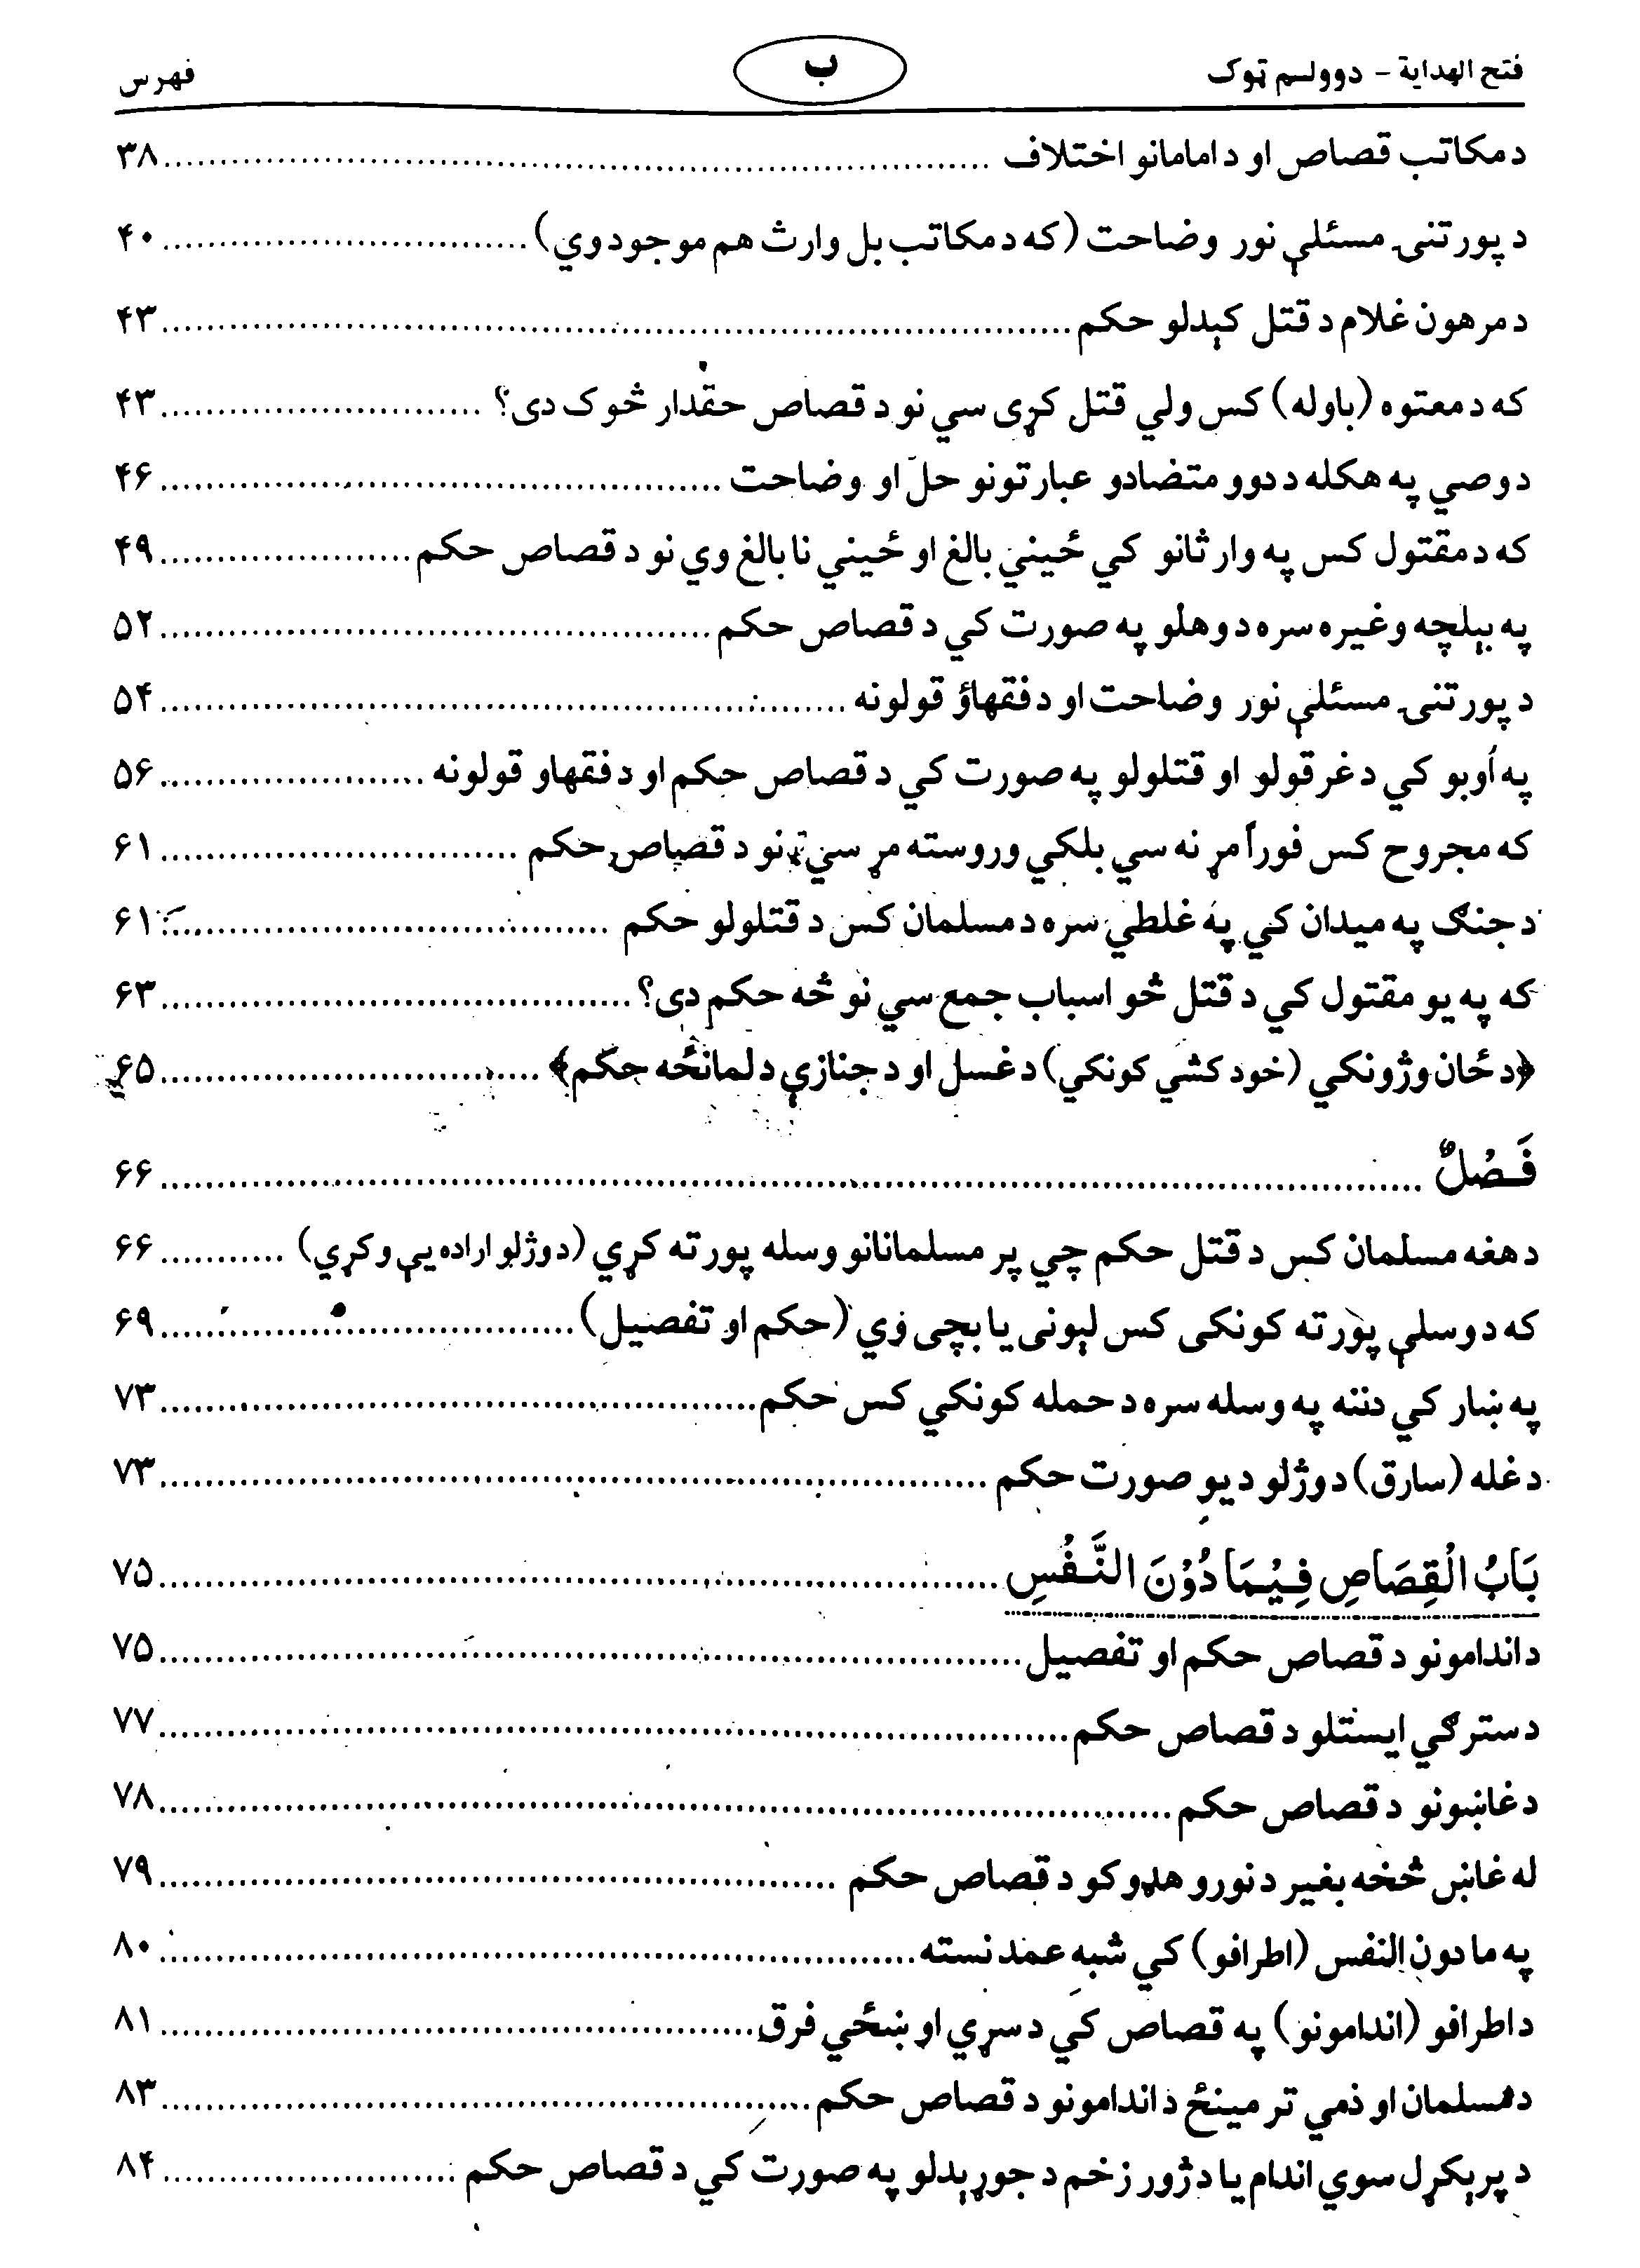 فتح الهداية - دوولسم ټوک ب فهرس
د مکاتب قصاص او د امامانو اختلاف ........ ۳۸
د پورتنۍ مسئلې نور وضاحت (که د مکاتب بل وارث هم موجود وي) ........ ۴۰
د مرهون غلام د قتل کېدلو حکم ........ ۴۳
که د معتوه (باوله) کس ولي قتل کړی سي نو د قصاص حقدار څوک دی؟ ........ ۴۳
د وصي په هکله د دوو متضادو عبارتونو حل او وضاحت ........ ۴۶
که د مقتول کس په وارثانو کي ځيني بالغ او ځيني نابالغ وي نو د قصاص حکم ........ ۴۹
په بېلچه وغيره سره د وهلو په صورت کي د قصاص حکم ........ ۵۲
د پورتنۍ مسئلې نور وضاحت او د فقهاؤ قولونه ........ ۵۴
په أوبو کي د غرقولو او قتلولو په صورت کي د قصاص حکم او د فقهاو قولونه ........ ۵۶
که مجروح کس فوراً مړ نه سي بلکي وروسته مړ سي نو د قصاص حکم ........ ۶۱
د جنګ په ميدان کي په غلطي سره د مسلمان کس د قتلولو حکم ........ ۶۱
که په يو مقتول کي د قتل څو اسباب جمع سي نو څه حکم دی؟ ........ ۶۳
﴿د ځان وژونکي (خود کشي کونکي) د غسل او د جنازې د لمانځه حکم﴾ ........ ۶۵
فَصْلٌ ........ ۶۶
د هغه مسلمان کس د قتل حکم چي پر مسلمانانو وسله پورته کړي (د وژلو اراده يې وکړي) ........ ۶۶
که د وسلې پورته کونکی کس لېونی يا بچی وي (حکم او تفصيل) ........ ۶۹
په ښار کي دننه په وسله سره د حمله کونکي کس حکم ........ ۷۳
د غله (سارق) د وژلو د يو صورت حکم ........ ۷۳
بَابُ الْقِصَاصِ فِيْمَا دُوْنَ النَّفْسِ ........ ۷۵
د اندامونو د قصاص حکم او تفصيل ........ ۷۵
د سترګي ايستلو د قصاص حکم ........ ۷۷
د غاښونو د قصاص حکم ........ ۷۸
له غاښ څخه بغير د نورو هډوکو د قصاص حکم ........ ۷۹
په ما دون النفس (اطرافو) کي شبه عمد نسته ........ ۸۰
د اطرافو (اندامونو) په قصاص کي د سړي او ښځي فرق ........ ۸۱
د مسلمان او ذمي تر مينځ د اندامونو د قصاص حکم ........ ۸۳
د پرېکړل سوي اندام يا د ژور زخم د جوړېدلو په صورت کي د قصاص حکم ........ ۸۴